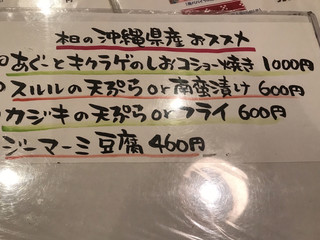 本日の沖縄県産おススメ
あぐーとキクラゲのしおコショー焼き 1000円
スルルの天ぷら or 南蛮漬け 600円
カジキの天ぷら or フライ 600円
ジーマーミ豆腐 460円